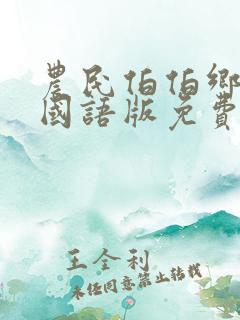 農民伯伯鄉
國語版免費
王全利
未经同意禁止转载